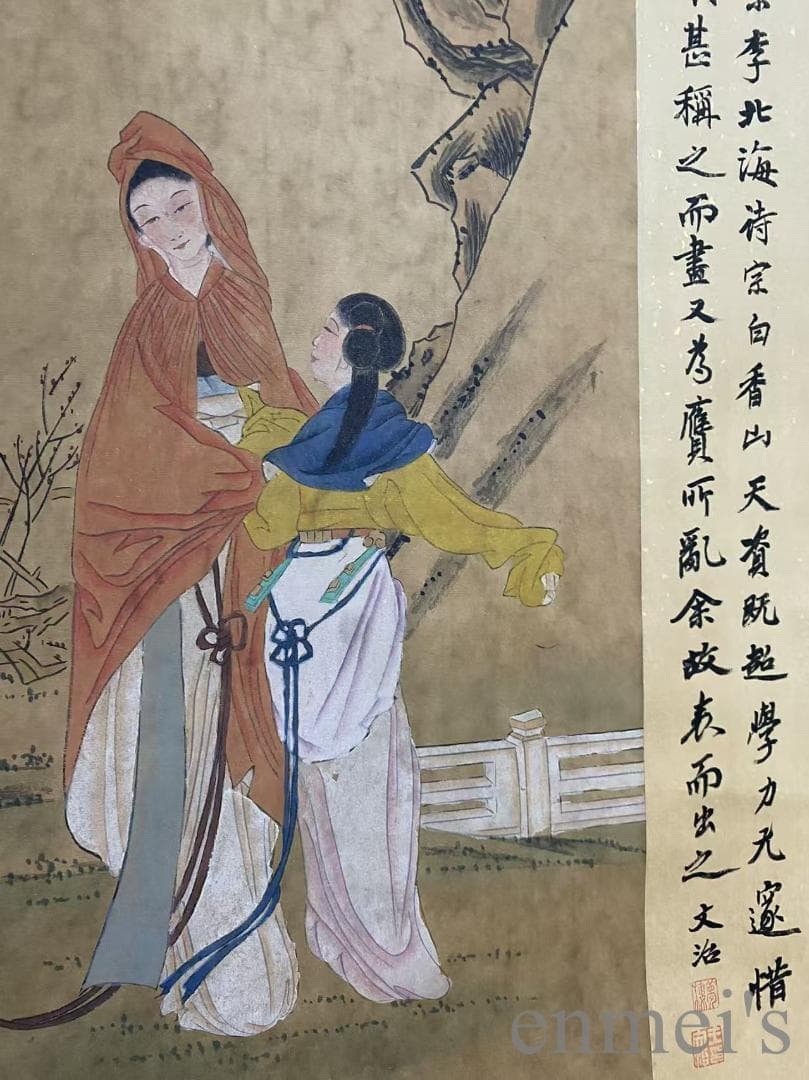 李北海诗宗白香山天資既超學力尤邃惜
甚稱之而畫又為贋所亂余故表而出之
文治
enmei's